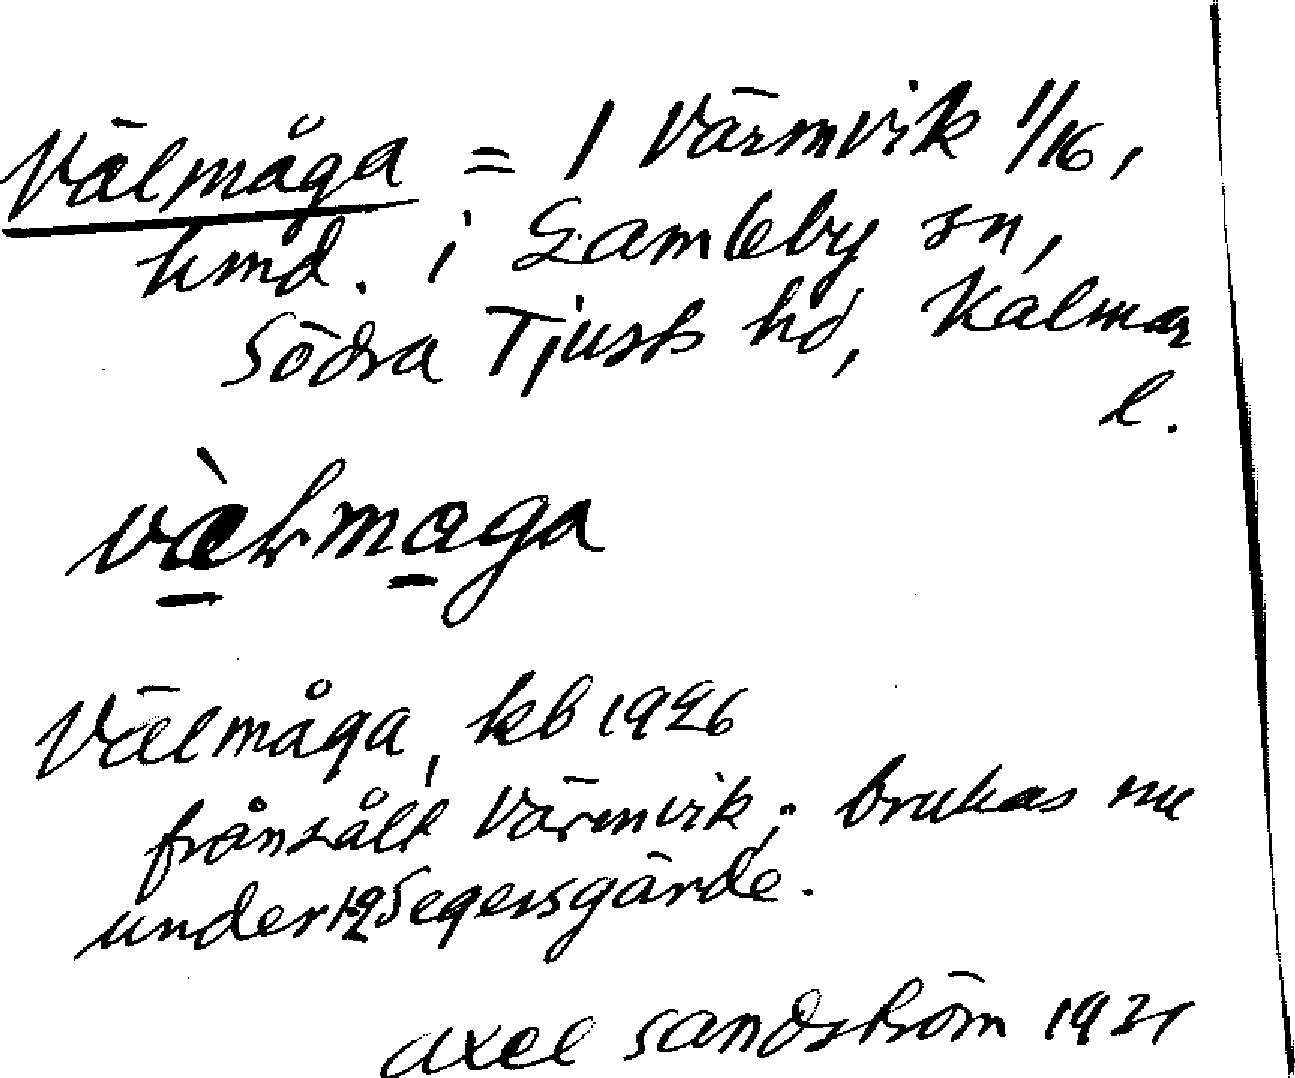 Välmåga = 1 Värmvik 1/16,
hmd. i Gamleby sn,
Södra Tjusts hd, Kalmar
l.
Välmåga, kb 1926
frånsålt Värmvik; brukas nu
under Segersgärde.
Axel Sandström 192